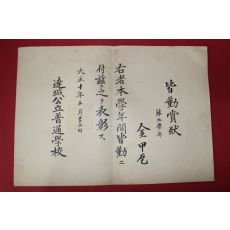 皆勤賞狀
第二學年
金甲
右者本學年間皆勤ニ
付玆ニ之ヲ表彰ス
大正十年三月廿三日
達城公立普通學校